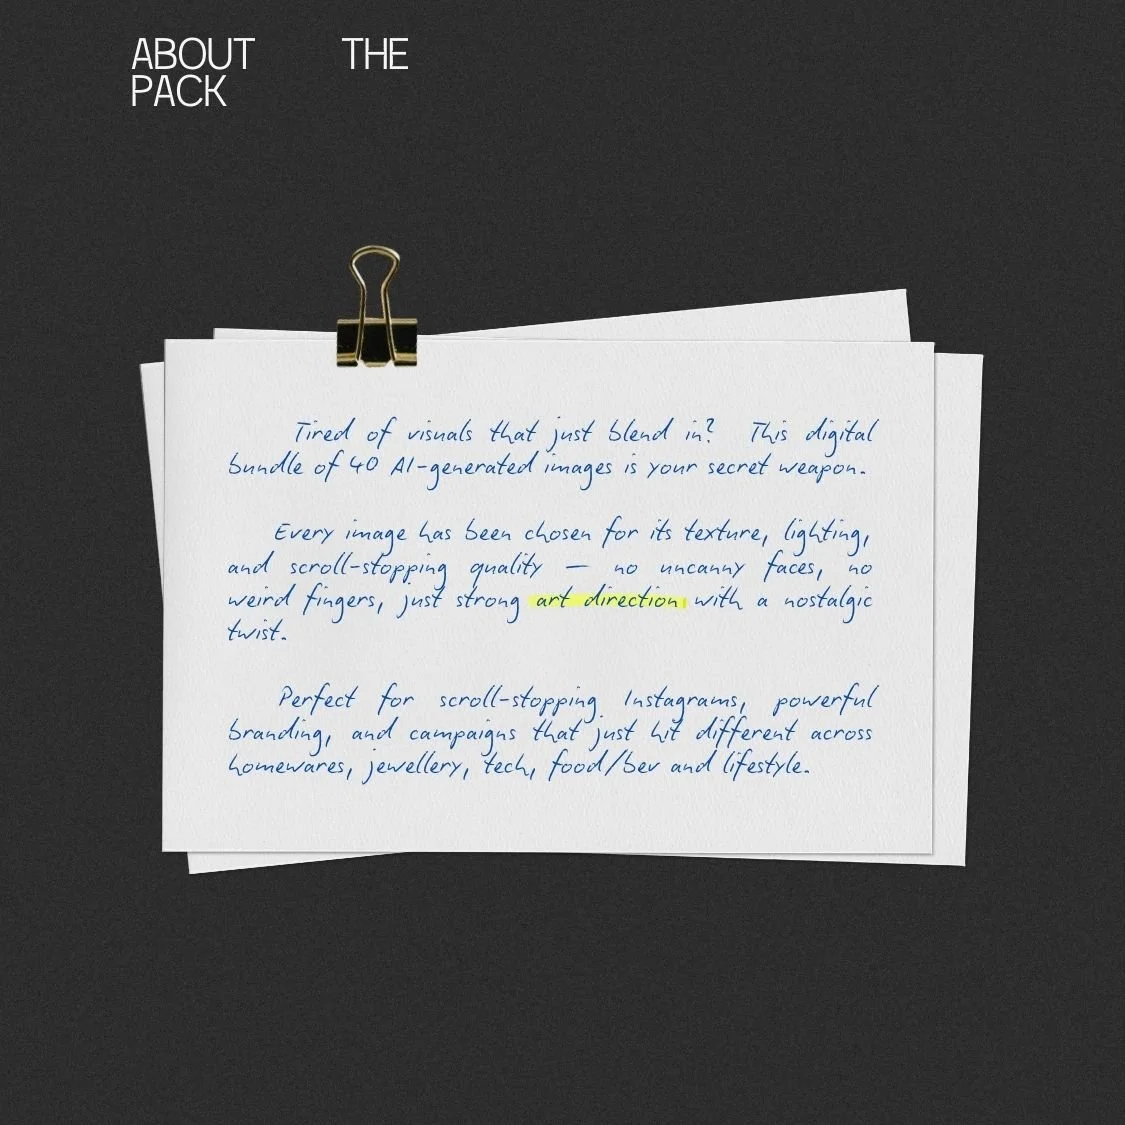 ABOUT THE
PACK
Tired of visuals that just blend in? This digital
bundle of 40 AI-generated images is your secret weapon.
Every image has been chosen for its texture, lighting,
and scroll-stopping quality — no uncanny faces, no
weird fingers, just strong art direction with a nostalgic
twist.
Perfect for scroll-stopping Instagrams, powerful
branding, and campaigns that just hit different across
homewares, jewellery, tech, food/bev and lifestyle.